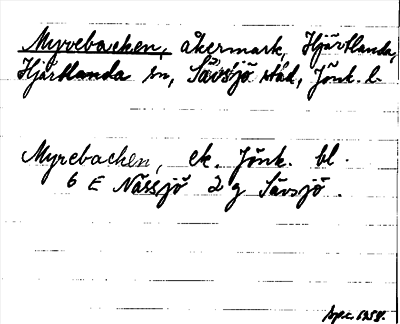 Myrebacken, åkermark, Hjärtlanda,
Hjärtlanda sn, Sävsjö stad, Jönk. l.
Myrebacken, ek. Jönk. bl.
6 E Nässjö 2 g Sävsjö.
1958.